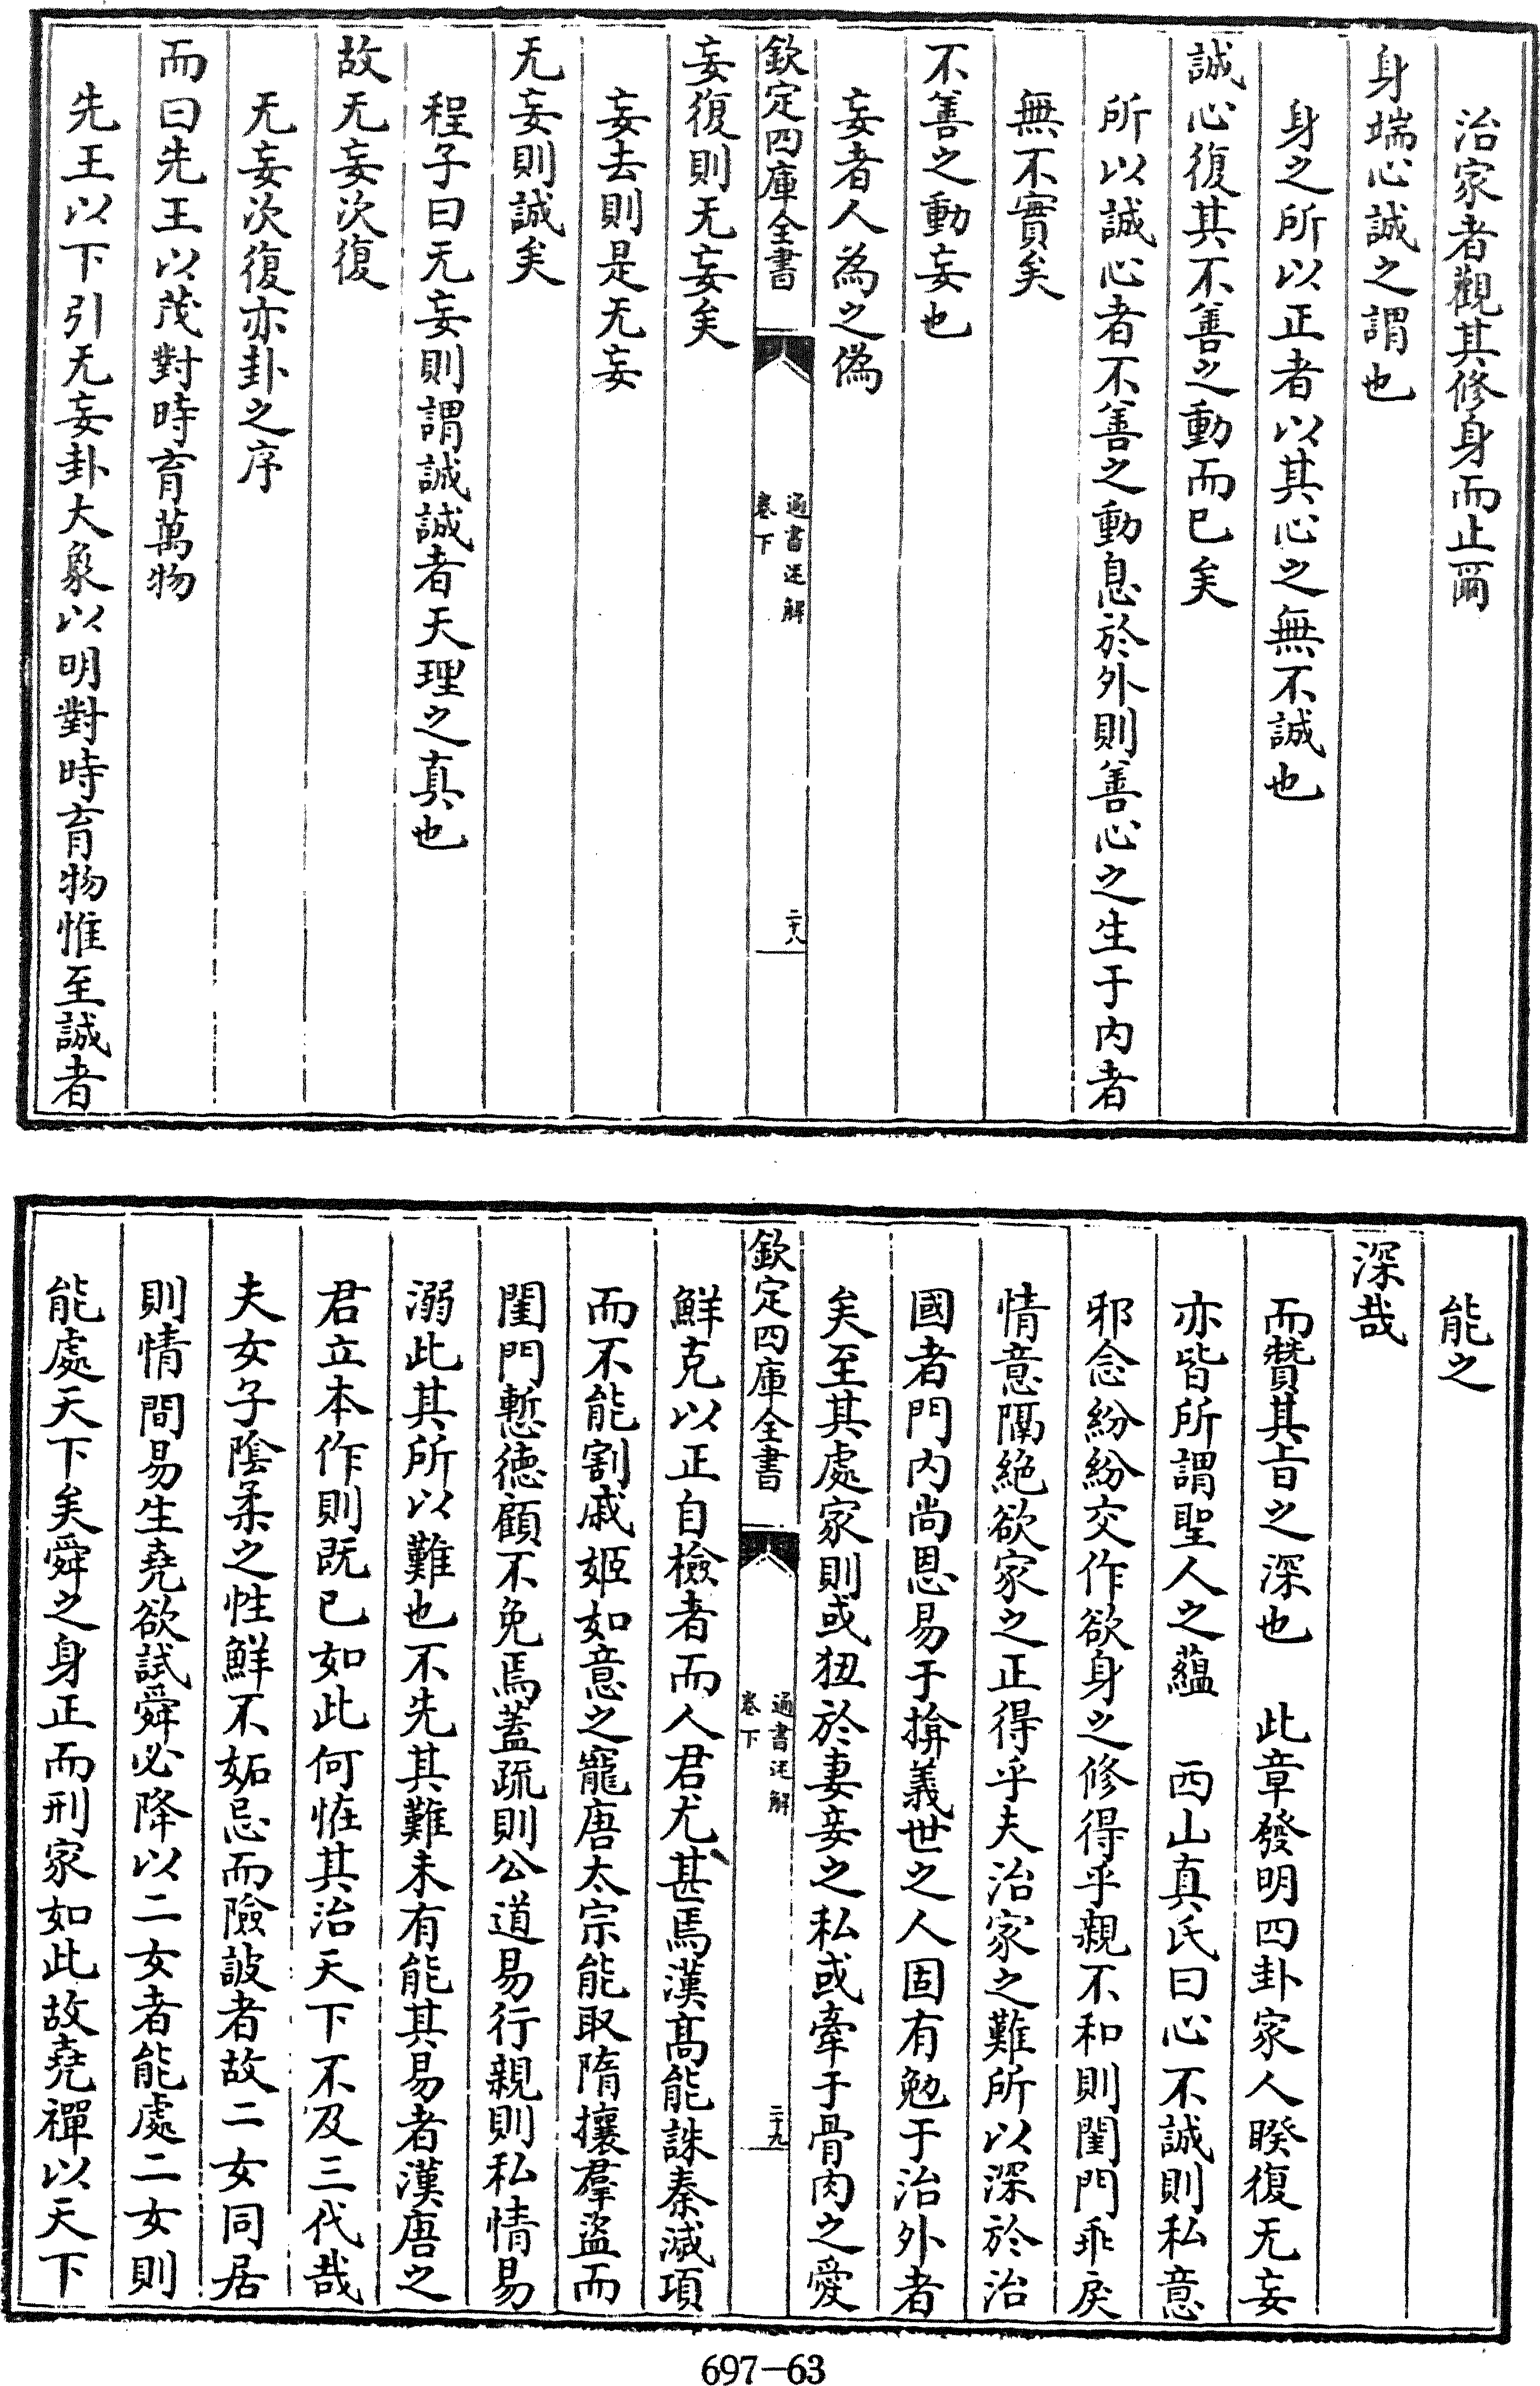 治家者觀其修身而止爾
身端心誠之謂也
身之所以正者以其心之無不誠也
誠心復其不善之動而已矣
所以誠心者不善之動息於外則善心之生于内者
無不實矣
不善之動妄也
妄者人為之偽
欽定四庫全書
通書述解
卷下
二十八
妄復則无妄矣
妄去則是无妄
无妄則誠矣
程子曰无妄則謂誠誠者天理之真也
故无妄次復
无妄次復亦卦之序
而曰先王以茂對時育萬物
先王以下引无妄卦大象以明對時育物惟至誠者
能之
深哉
而贊其旨之深也 此章發明四卦家人睽復无妄
亦皆所謂聖人之蘊 西山真氏曰心不誠則私意
邪念紛紛交作欲身之修得乎親不和則閨門乖戾
情意隔絶欲家之正得乎夫治家之難所以深於治
國者門内尚恩易于揜義世之人固有勉于治外者
矣至其處家則或狃於妻妾之私或牽于骨肉之愛
欽定四庫全書
通書述解
卷下
二十九
鮮克以正自檢者而人君尤甚焉漢高能誅秦滅項
而不能割戚姬如意之寵唐太宗能取隋攘羣盜而
閨門慙徳顧不免焉蓋疏則公道易行親則私情易
溺此其所以難也不先其難未有能其易者漢唐之
君立本作則既已如此何恠其治天下不及三代哉
夫女子陰柔之性鮮不妬忌而險詖者故二女同居
則情間易生堯欲試舜必降以二女者能處二女則
能處天下矣舜之身正而刑家如此故堯禪以天下
697-63